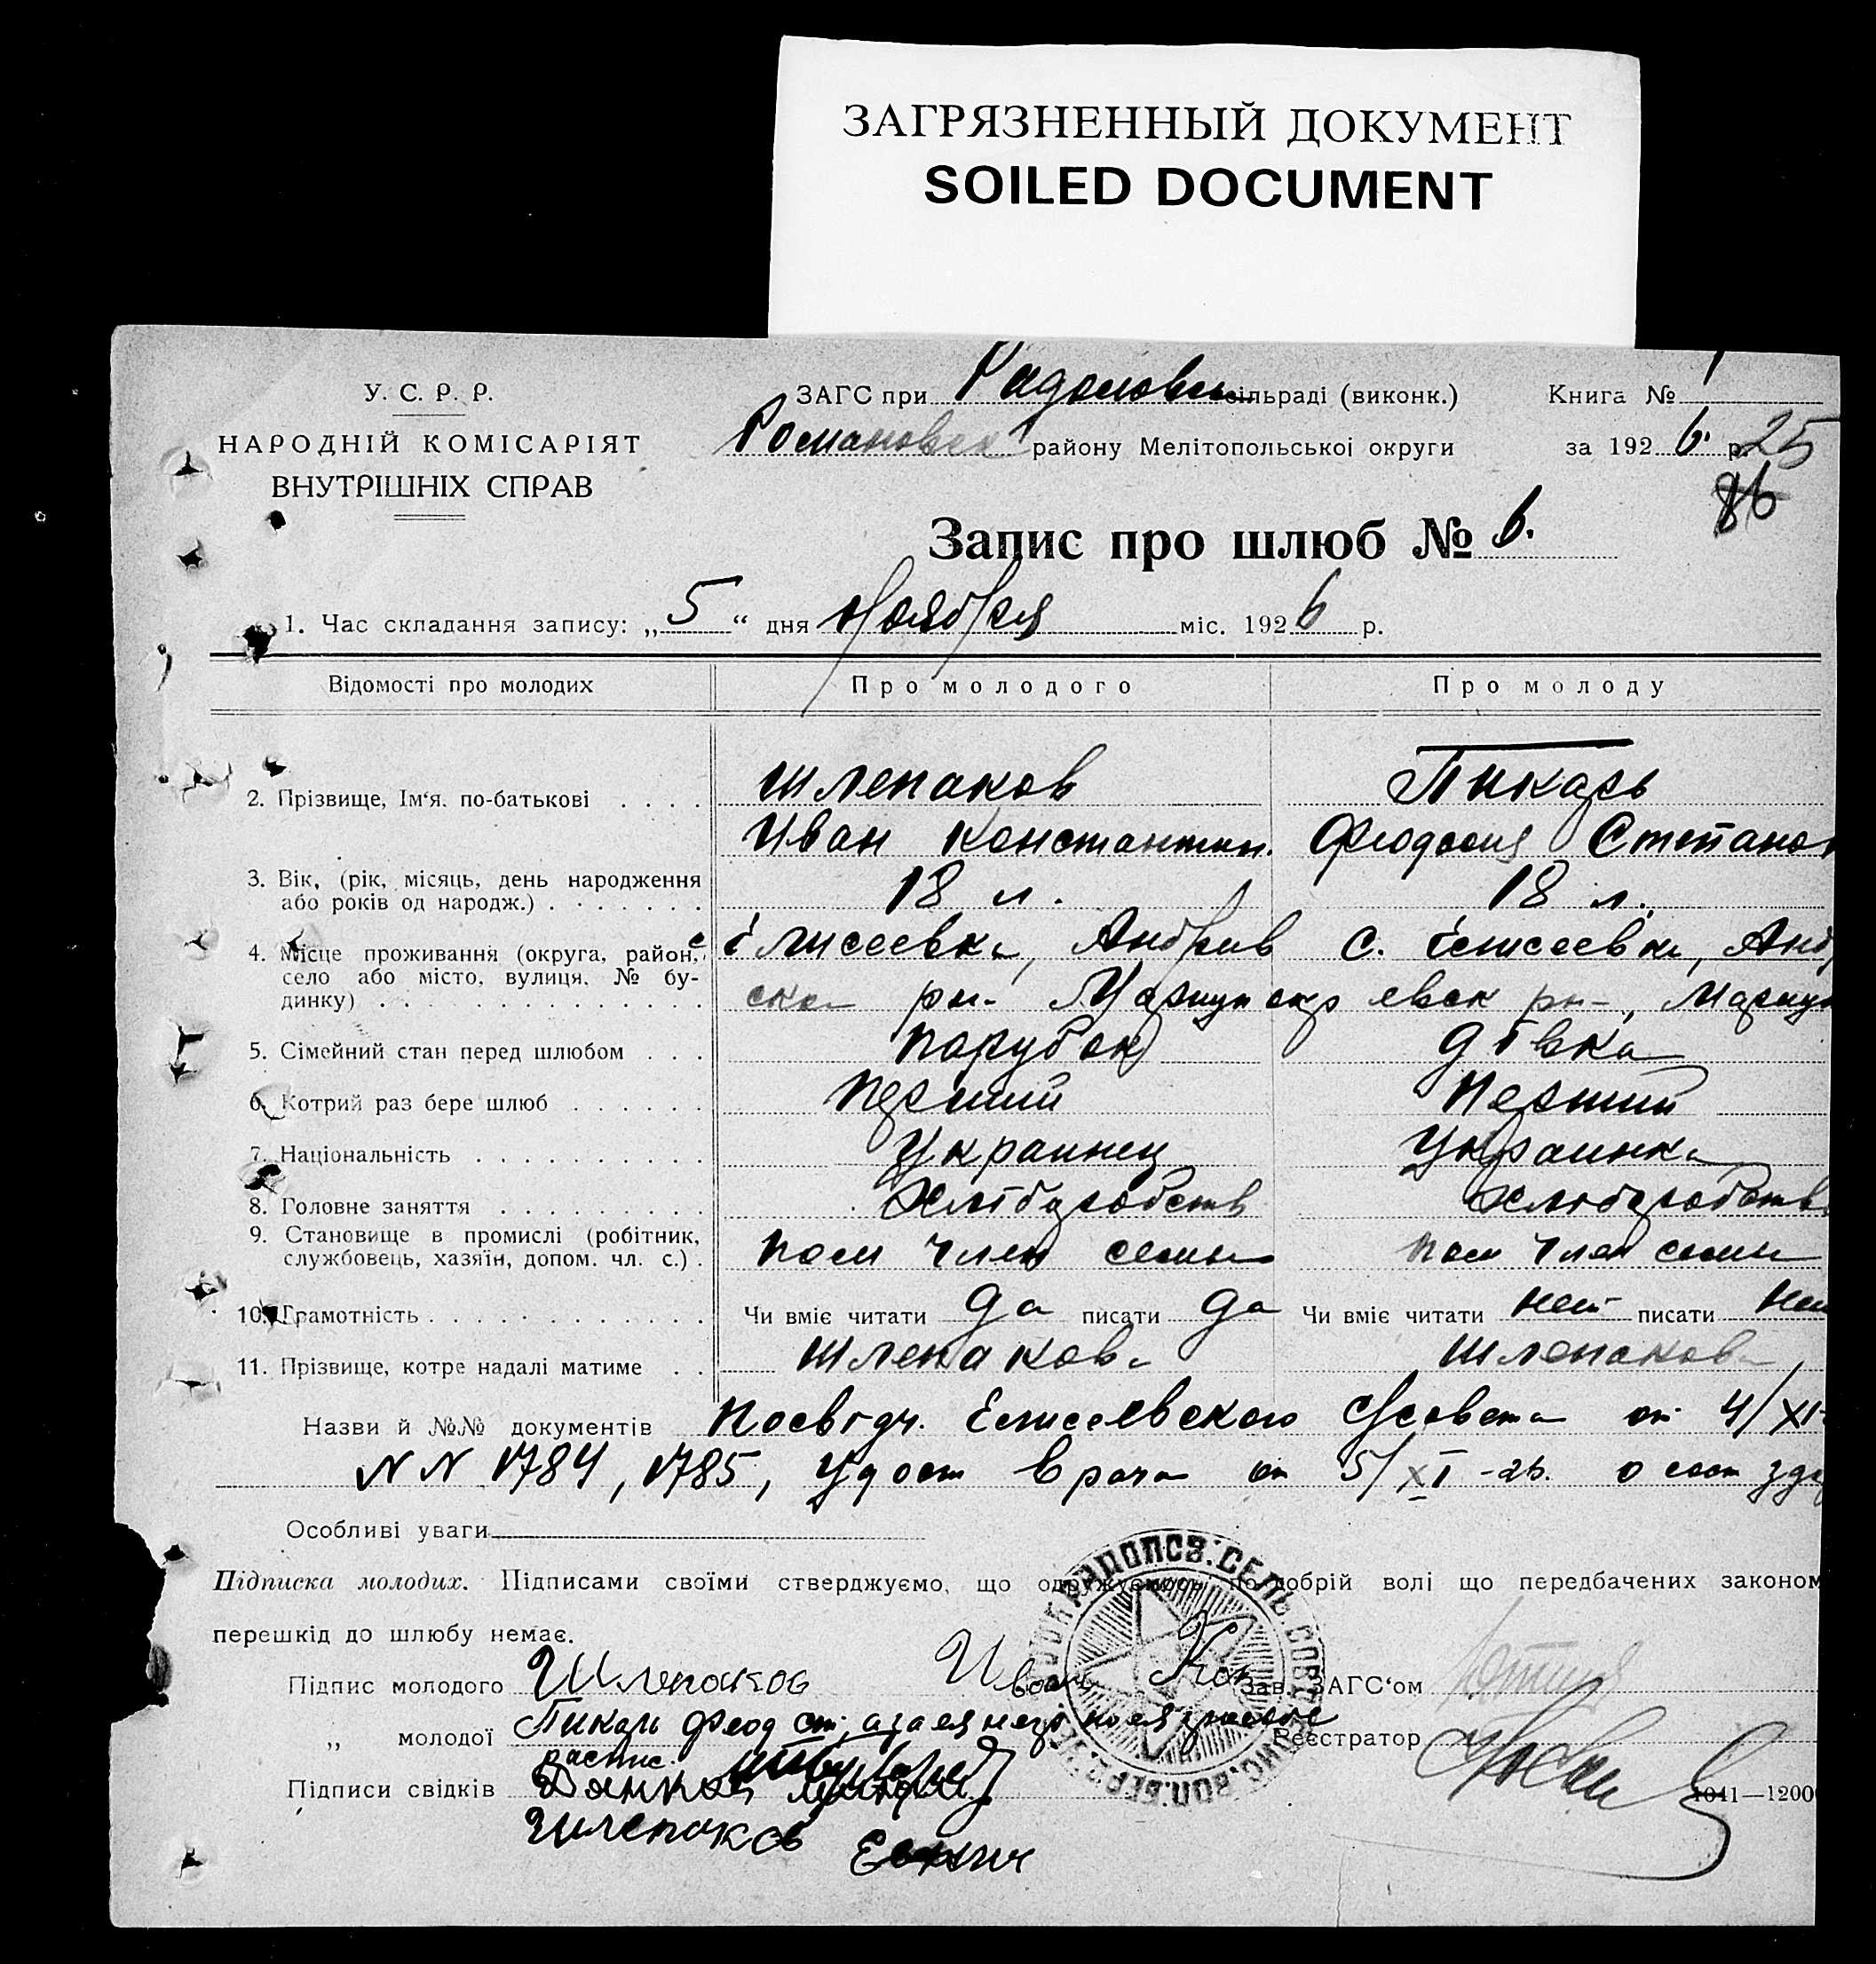 ЗАГРЯЗНЕННЫЙ ДОКУМЕНТ
SOILED DOCUMENT
У. С. Р. Р.
НАРОДНІЙ КОМІСАРІЯТ
ВНУТРІШНІХ СПРАВ
ЗАГС при сільраді (виконк.) Книга №
Романовск району Мелітопольськоі округи за 1926 р. 25
86
Запис про шлюб № 6.
1. Час складання запису: „5“ дня Ноября міс. 1926 р.
Відомості про молодих Про молодого Про молоду
2. Прізвище, Ім'я. по-батькові Шлепаков Пикарь
Иван Константин. Феодосия Степанов
3. Вік, (рік, місяць, день народження або років од народж.) 18 л. 18 л.
4. Місце проживання (округа, район, с Елисеевка, Андрив с. Елисеевка, Анд
село або місто, вулиця. № будинку) ска ри- Мариупокр евск ри-, Мариуп
5. Сімейний стан перед шлюбом парубок дівка
6. Котрий раз бере шлюб Перший Перший
7. Національність Украинец Украинка
8. Головне заняття Хліборобств Хліборобств
9. Становище в промислі (робітник, службовець, хазяїн, допом. чл. с.) пом член семьи пом член семьи
10. Грамотність Чи вміє читати да писати да Чи вміє читати нет писати нет
11. Прізвище, котре надалі матиме Шлепакова Шлепакова
Назви й №№ документів Посвідч. Елисеевского С/совета от 4/XI-
NN 1784, 1785, Удост врача от 5/XI-26. о сост здо
Особливі уваги
Підписка молодих. Підписами своїми стверджуємо, що одружуємось по добрій волі що передбачених законом
перешкід до шлюбу немає.
Підпис молодого Шлепаков Иван Кон Зав. ЗАГС'ом
„ молодої Пикарь Феод Ст, а за ея негр по ея просьбе Реєстратор
распис.
Підписи свідків
1041—1200
Шлепаков